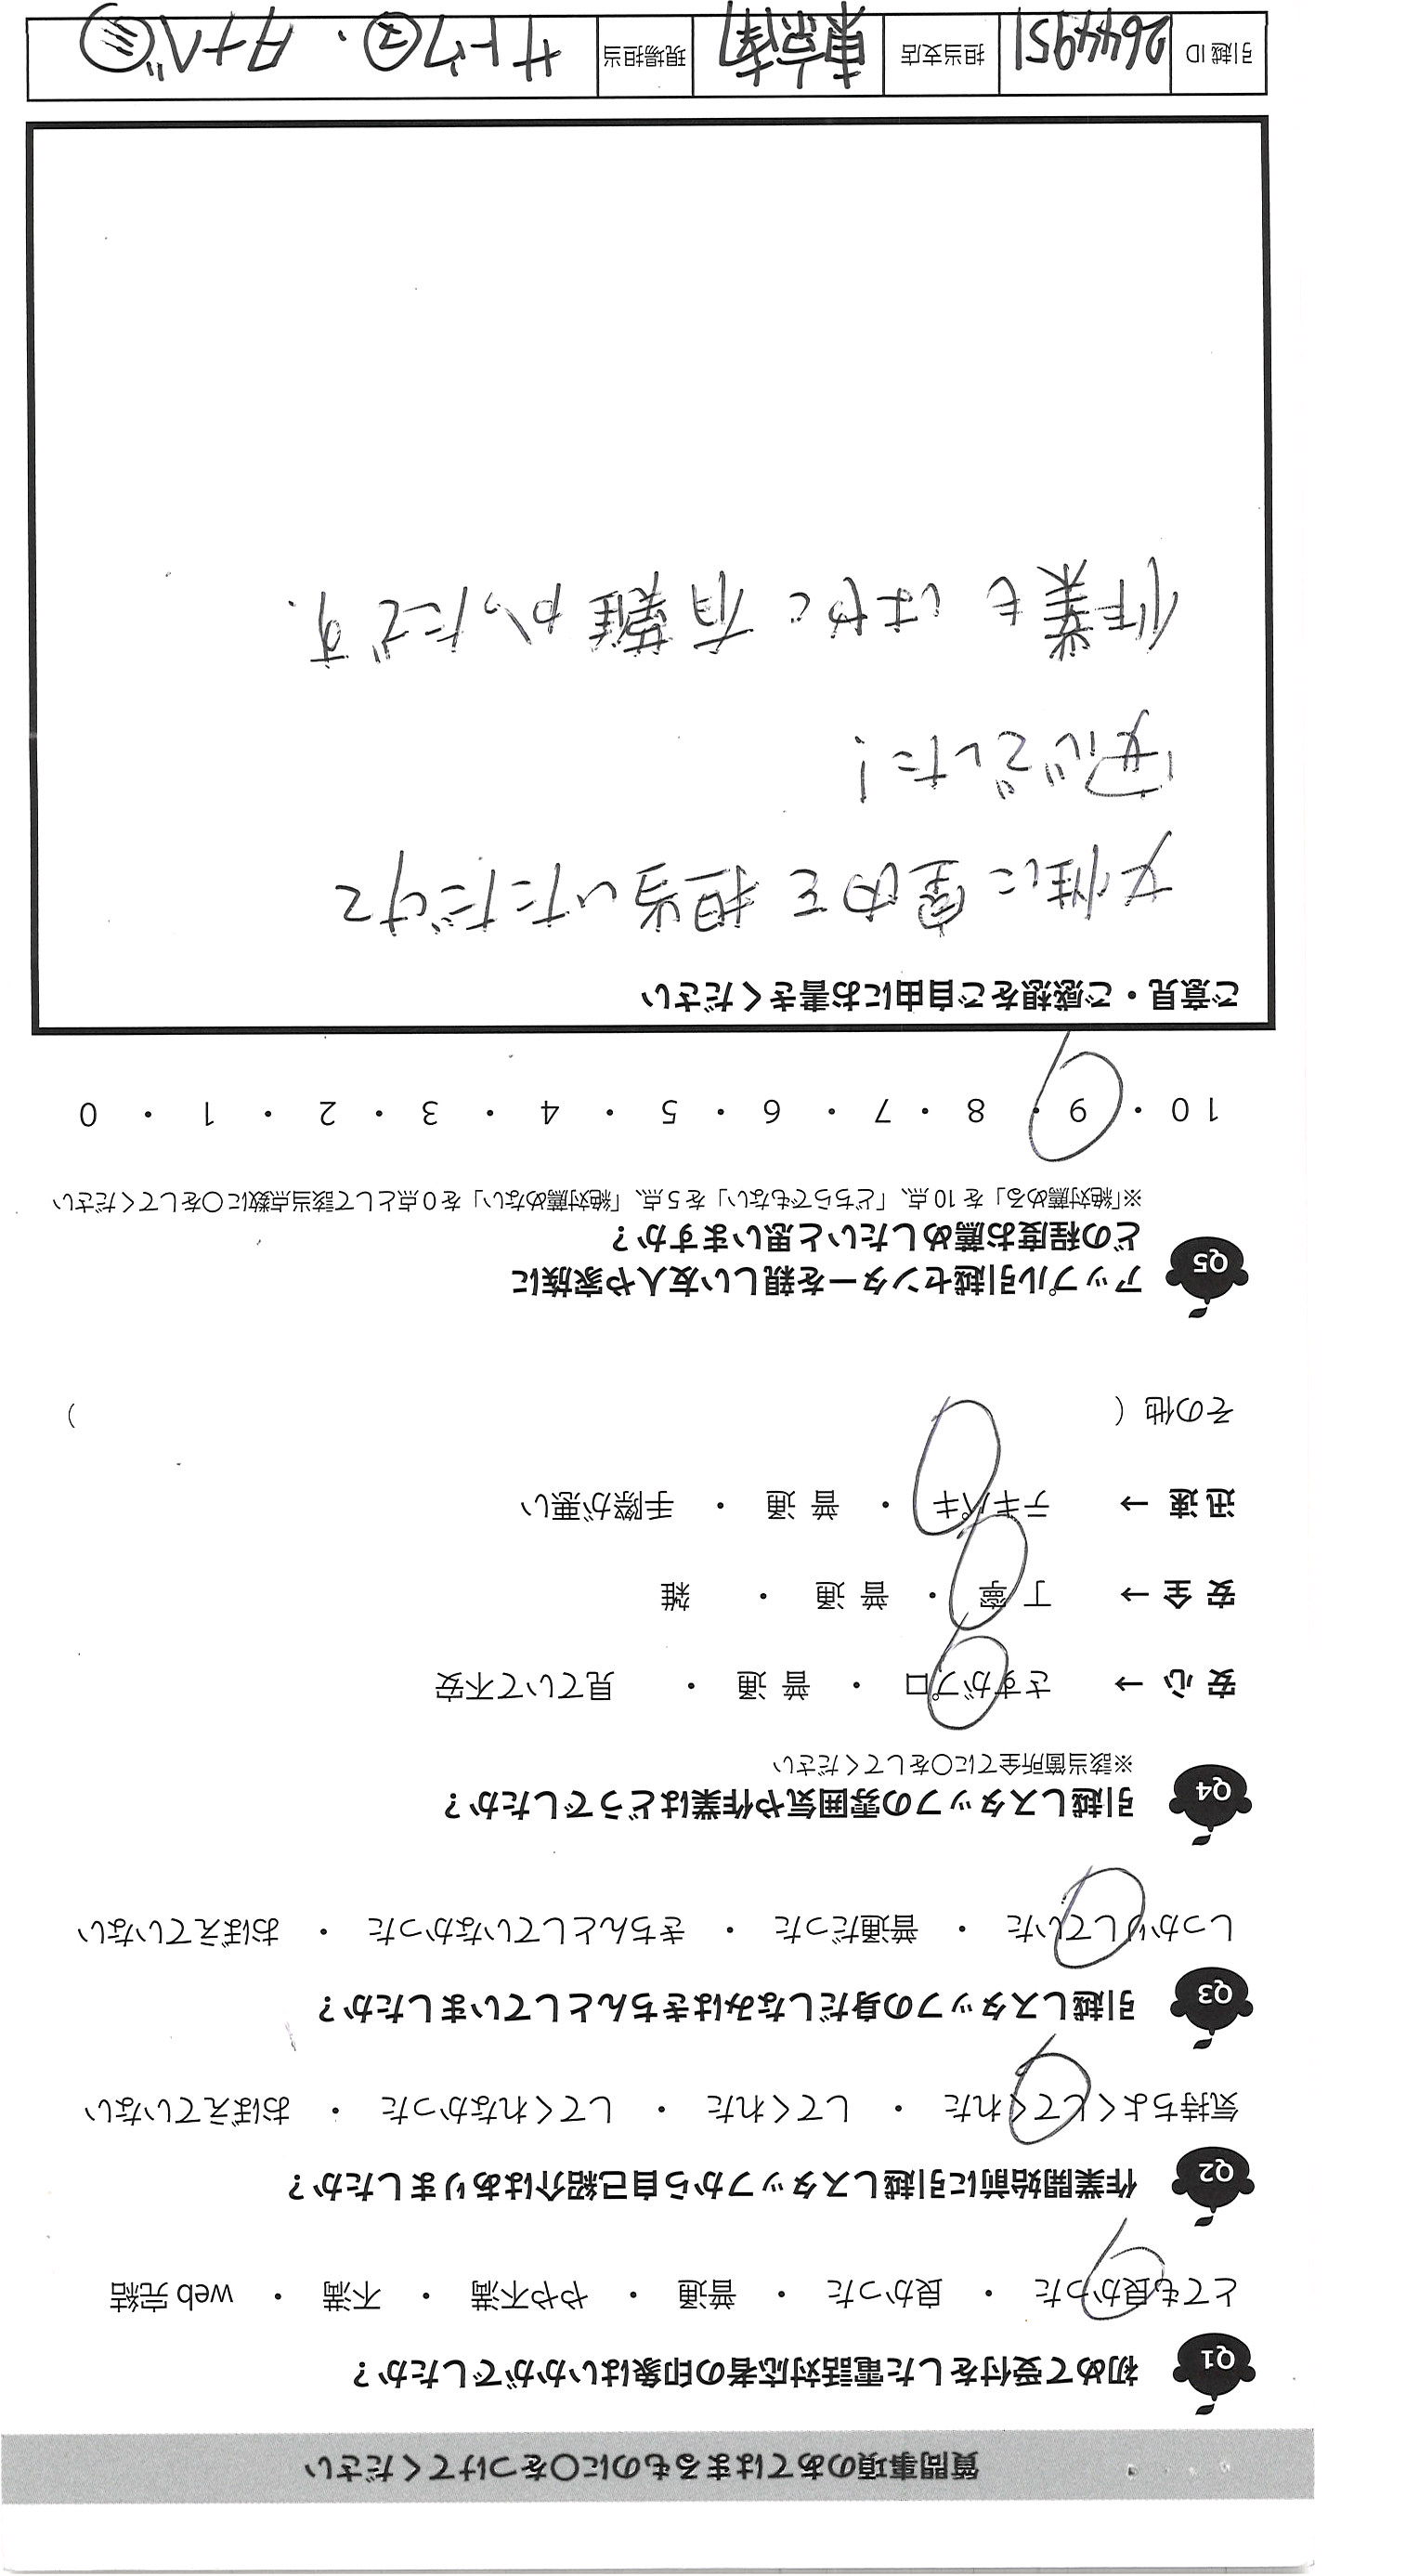 質問事項のあてはまるものに〇をつけてください
Q1 初めて受付をした電話対応者の印象はいかがでしたか？
とても良かった ・ 良かった ・ 普通 ・ やや不満 ・ 不満 ・ web 完結
Q2 作業開始前に引越しスタッフから自己紹介はありましたか？
気持ちよくしてくれた ・ してくれた ・ してくれなかった ・ おぼえていない
Q3 引越しスタッフの身だしなみはきちんとしていましたか？
しっかりしていた ・ 普通だった ・ きちんとしていなかった ・ おぼえていない
Q4 引越しスタッフの雰囲気や作業はどうでしたか？
※該当箇所全てに〇をしてください
安 心 → さすがプロ ・ 普 通 ・ 見ていて不安
安 全 → 丁 寧 ・ 普 通 ・ 雑
迅 速 → テキパキ ・ 普 通 ・ 手際が悪い
その他（ ）
Q5 アップル引越センターを親しい友人や家族に
どの程度お薦めしたいと思いますか？
※「絶対薦める」を 10 点、「どちらでもない」を 5 点、「絶対薦めない」を 0 点として該当点数に〇をしてください
10 ・ 9 ・ 8 ・ 7 ・ 6 ・ 5 ・ 4 ・ 3 ・ 2 ・ 1 ・ 0
ご意見・ご感想をご自由にお書きください
女性に室内を担当いただけて
安心でした！
作業もはやく有難かったです.
引越 ID 2644951 担当支店 東京南 現場担当 サトウ・タナベ